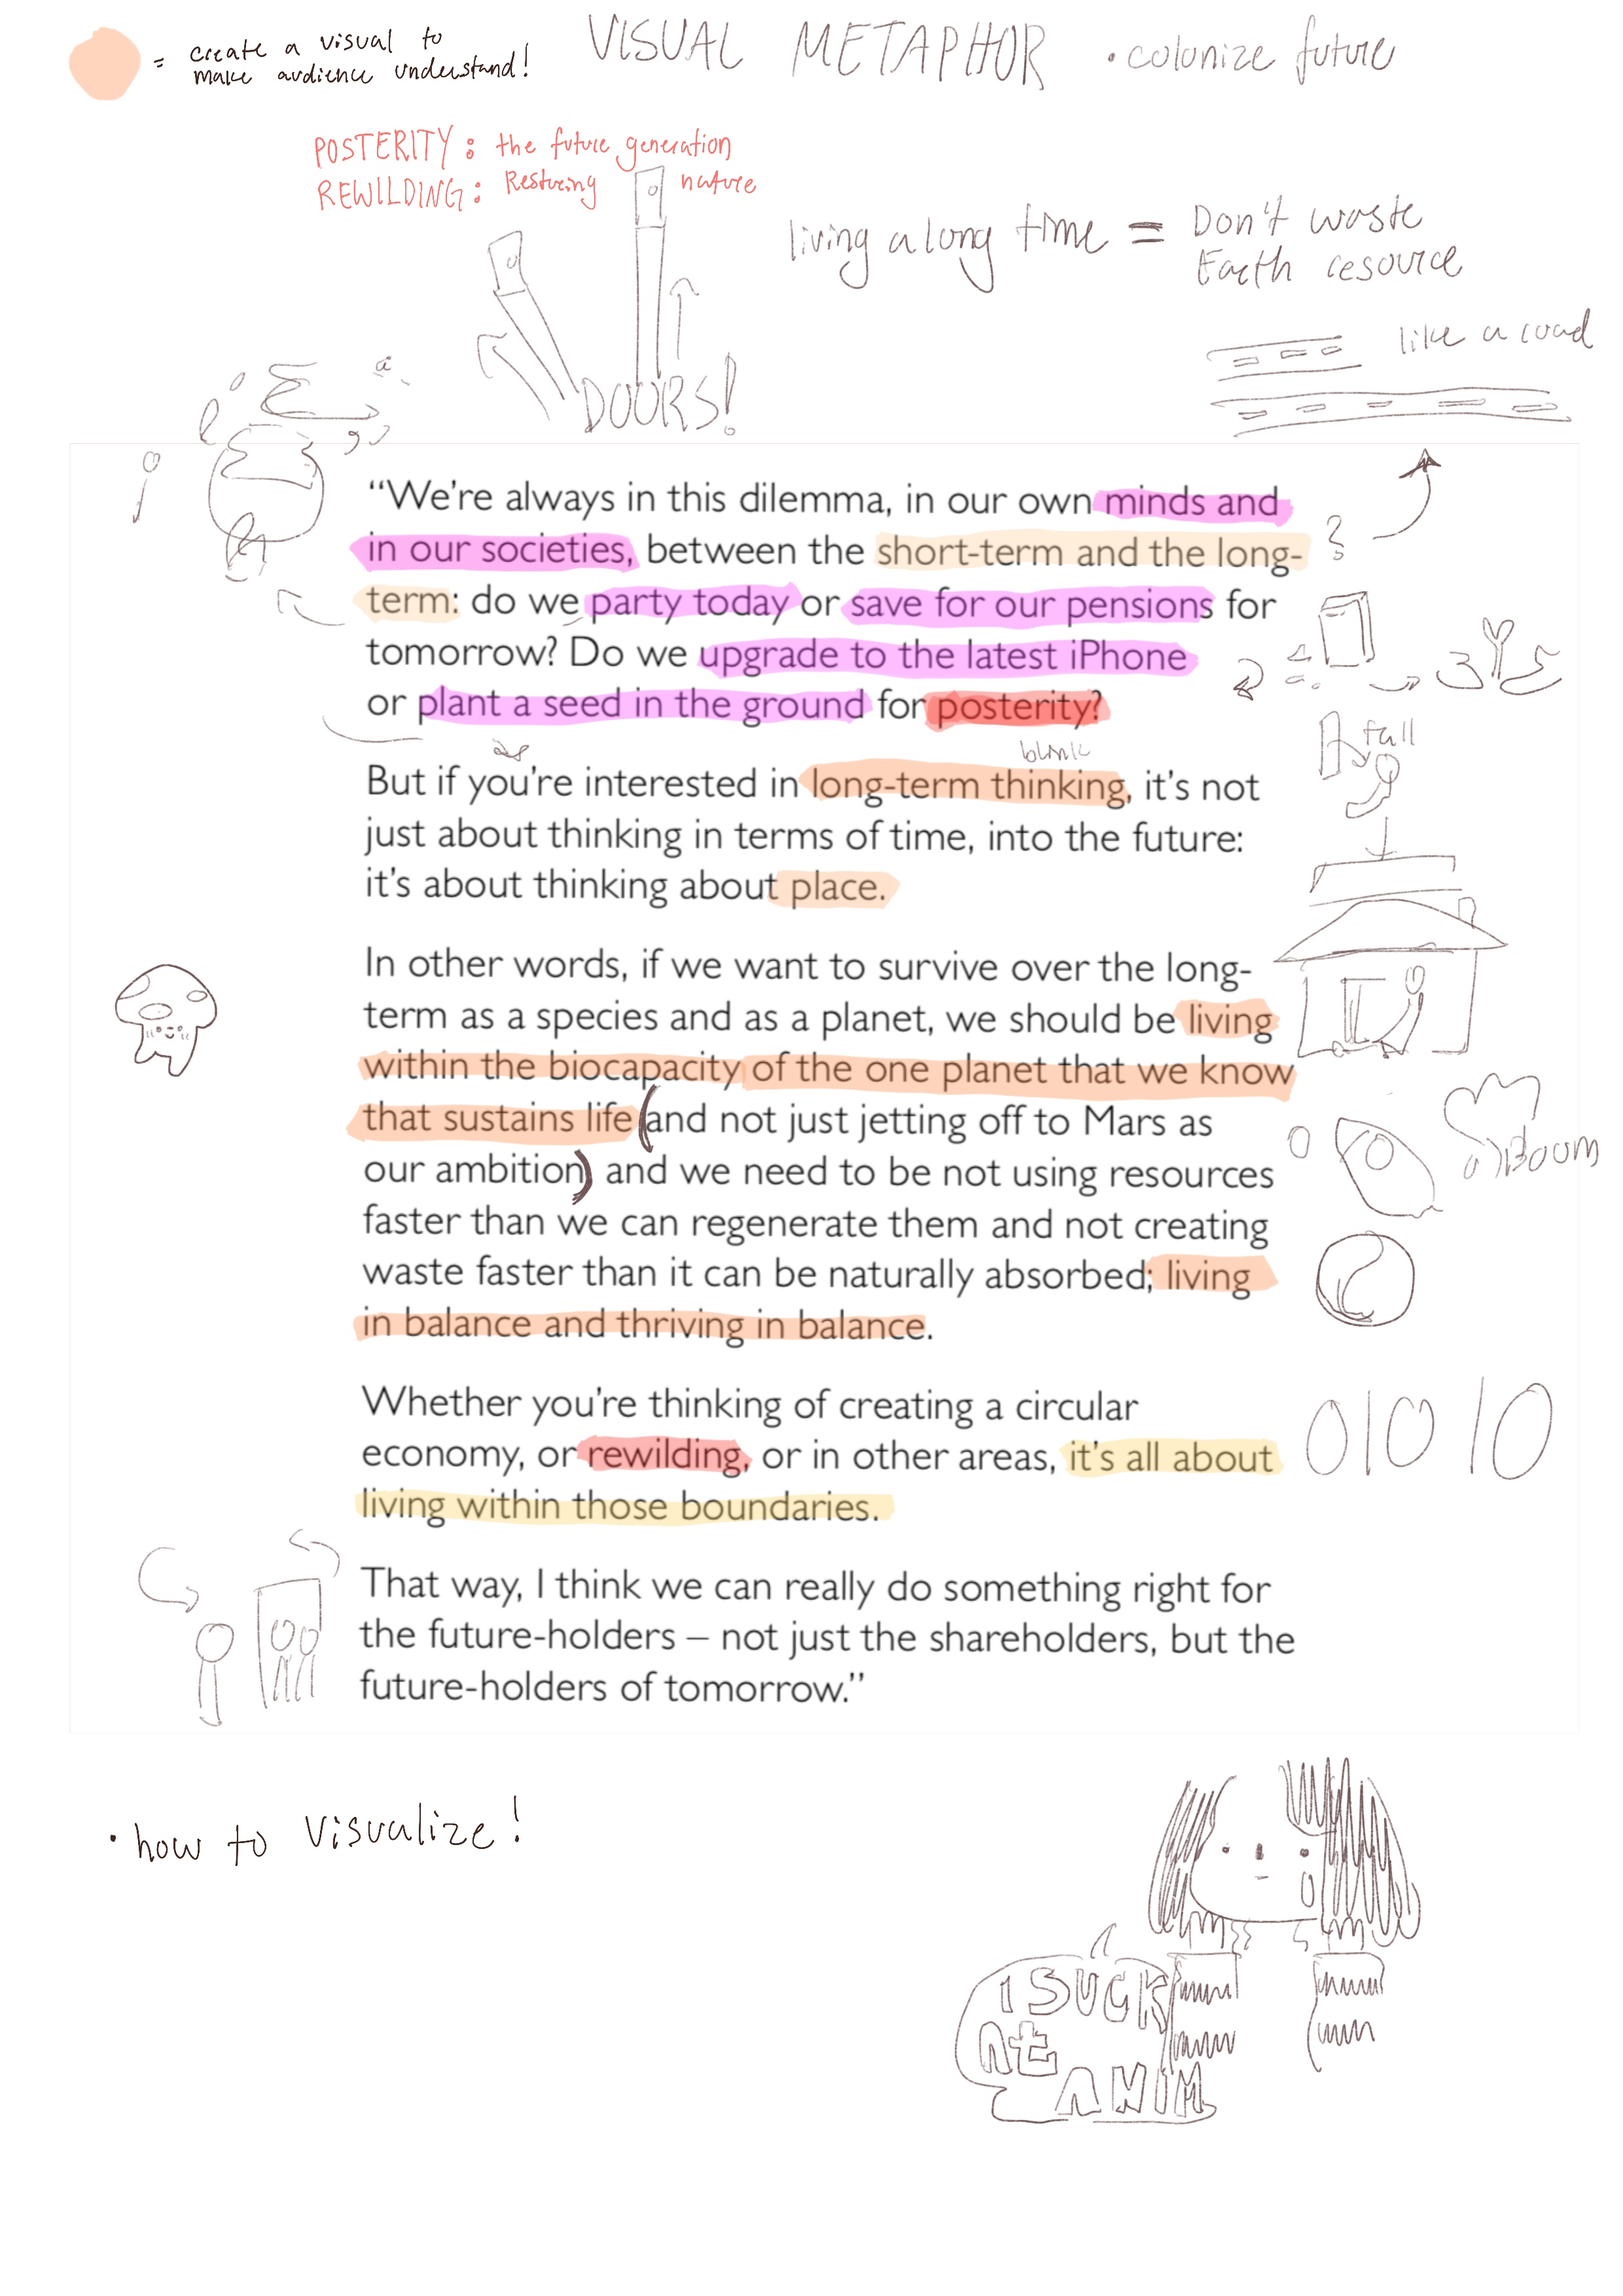 = create a visual to
make audience understand!
VISUAL METAPHOR
• colonize future
POSTERITY: the future generation
REWILDING: Restoring nature
living a long time = Don't waste
Earth resource
like a road
DOORS!
“We're always in this dilemma, in our own minds and
in our societies, between the short-term and the long-
term: do we party today or save for our pensions for
tomorrow? Do we upgrade to the latest iPhone
or plant a seed in the ground for posterity?
fall
blink
But if you're interested in long-term thinking, it's not
just about thinking in terms of time, into the future:
it's about thinking about place.
In other words, if we want to survive over the long-
term as a species and as a planet, we should be living
within the biocapacity of the one planet that we know
that sustains life (and not just jetting off to Mars as
our ambition) and we need to be not using resources
Boom
faster than we can regenerate them and not creating
waste faster than it can be naturally absorbed; living
in balance and thriving in balance.
Whether you're thinking of creating a circular
economy, or rewilding, or in other areas, it's all about
living within those boundaries.
01010
That way, I think we can really do something right for
the future-holders – not just the shareholders, but the
future-holders of tomorrow.”
• how to visualize!
I SUCK
At
ANIM